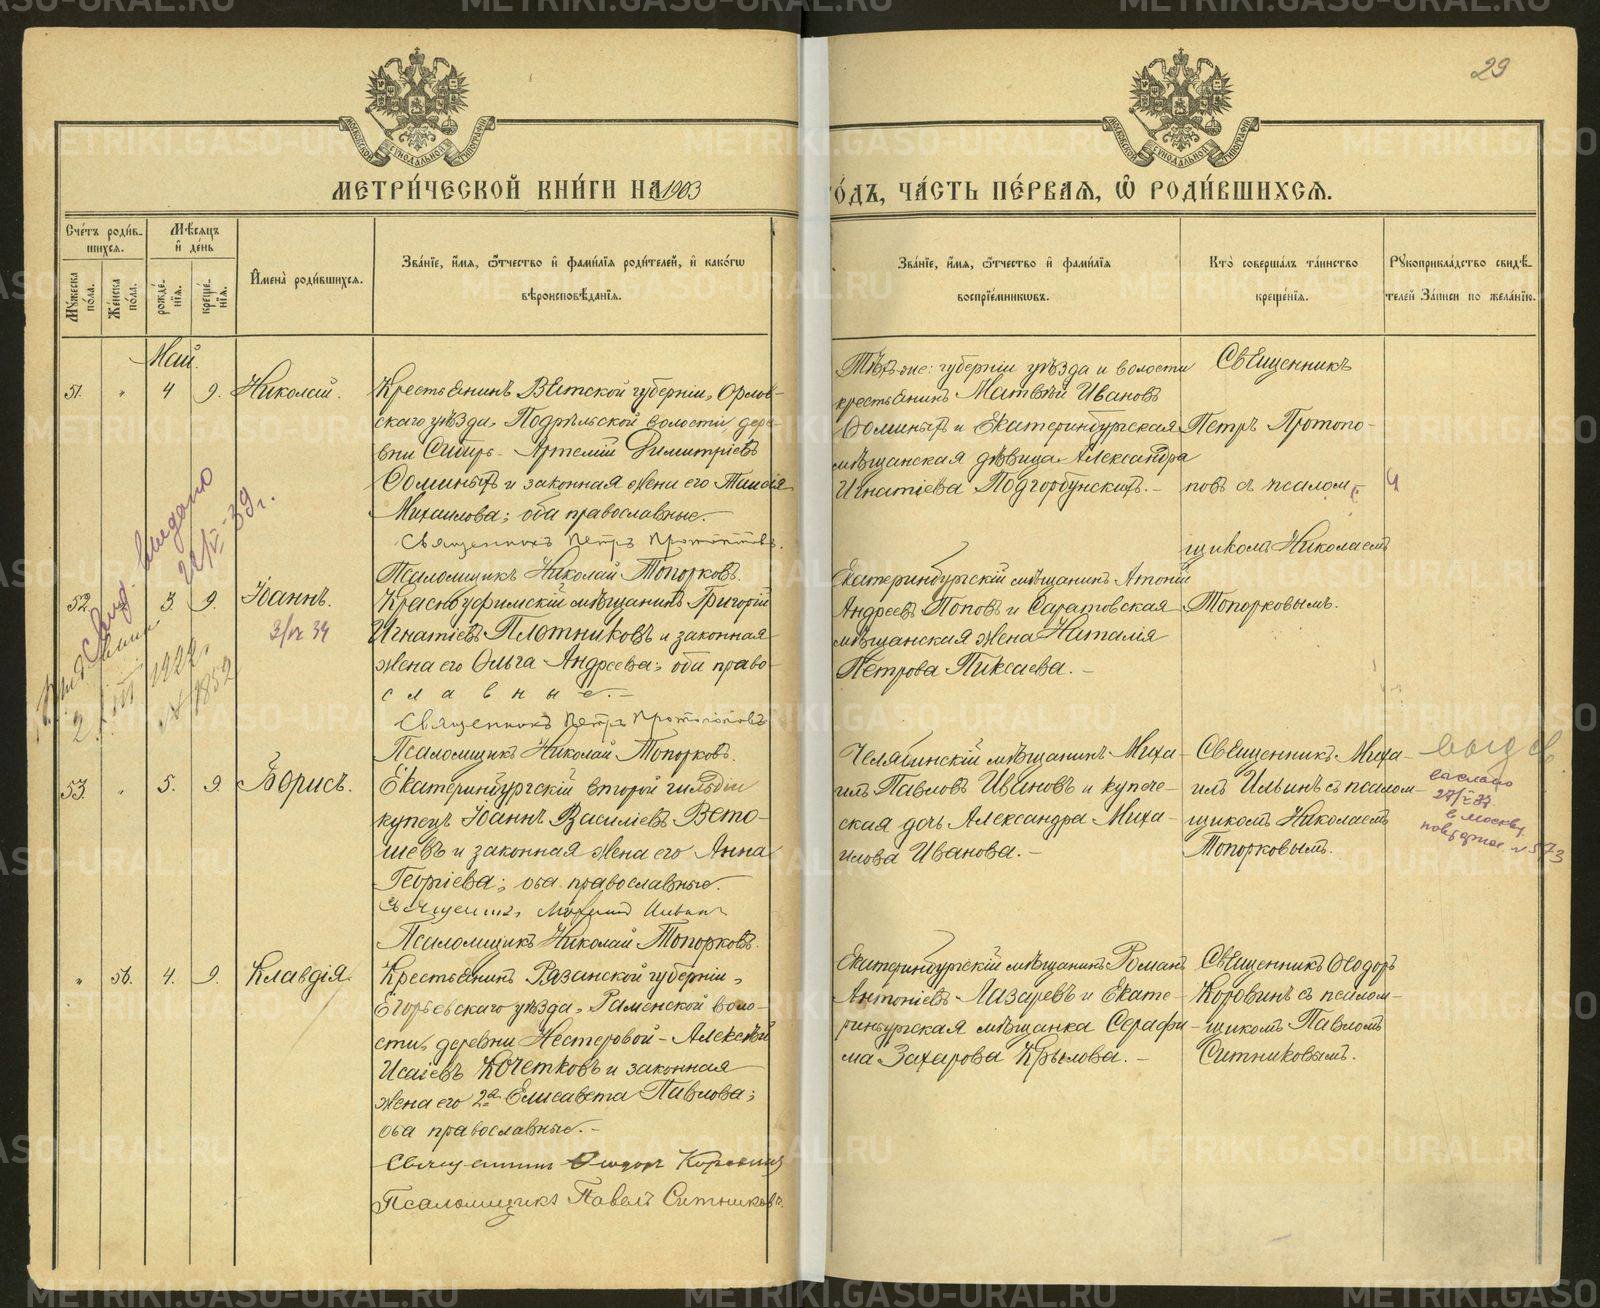 29
МЕТРИ́ЧЕСКОЙ КНИ́ГИ НА 1903
ГО́ДЪ, ЧА́СТЬ ПЕ́РВАЯ, Ѿ РОДИ́ВШИХСЯ.
Сче́тъ роди́в-
шихся.
Мѣ́сяцъ
и҆ де́нь
Мꙋжеска по́ла.
Же́нска по́ла.
рожде́нїя.
креще́нїя.
И҆мена̀ роди́вшихся.
Зва́нїе, и҆́мя, ѻ҆́тчество и҆ фами́лїя роди́телей, и҆ како́гѡ
вѣроисповѣ́данїя.
Зва́нїе, и҆́мя, ѻ҆́тчество и҆ фами́лїя
воспрїе́мниковъ.
Кто̀ соверша́лъ та́инство
креще́нїя.
Рꙋкоприкла́дство свидѣ́-
телей За́писи по жела́нїю.
Май.
51. " 4 9. Николай.
Крестьянинъ Вятской губерніи, Орлов-
скаго уѣзда, Подрѣльской волости дере-
вни Сибирь - Артемій Димитріевъ
Ѳоминыхъ и законная жена его Таисія
Михаилова; оба православные.
Священникъ Петръ Протопоповъ.
Псаломщикъ Николай Топорковъ.
Тѣхъ-же: губерніи уѣзда и волости
крестьянинъ Матвѣй Ивановъ
Ѳоминыхъ и Екатеринбургская
мѣщанская дѣвица Александра
Игнатіева Подгорбунскихъ. -
Священникъ
Петръ Протопо-
повъ съ псалом-
щикомъ Николаемъ
Топорковымъ.
52. 3. 9. Іоаннъ.
Красноуфимскій мѣщанинъ Григорій
Игнатіевъ Плотниковъ и законная
жена его Ольга Андреева; оба право-
славные. -
Священникъ Петръ Протопоповъ
Псаломщикъ Николай Топорковъ.
Екатеринбургскій мѣщанинъ Антоній
Андреевъ Поповъ и Саратовская
мѣщанская жена Наталія
Петрова Пиксаева. -
Свид. выдано
22/V-39г.
1922
№ 1852
53. " 5. 9. Борисъ.
Екатеринбургскій второй гильдіи
купецъ Іоаннъ Василіевъ Вето-
шевъ и законная жена его Анна
Георгіева; оба православные.
Священникъ Михаилъ Ильинъ
Псаломщикъ Николай Топорковъ.
Челябинскій мѣщанинъ Миха-
илъ Павловъ Ивановъ и купече-
ская дочь Александра Миха-
илова Иванова. -
Священникъ Миха-
илъ Ильинъ съ псалом-
щикомъ Николаемъ
Топорковымъ.
выд св.
в Москву
" 56. 4. 9. Клавдія.
Крестьянинъ Рязанской губерніи,
Егорьевскаго уѣзда, Раменской воло-
сти, деревни Нестеровой - Алексѣй
Исаіевъ Кочетковъ и законная
жена его 2ая Елисавета Павлова;
оба православные. -
Священникъ Ѳеодоръ Коровинъ
Псаломщикъ Павелъ Ситниковъ.
Екатеринбургскій мѣщанинъ Романъ
Антоніевъ Лазаревъ и Екате-
ринбургская мѣщанка Серафи-
ма Захарова Крылова. -
Священникъ Ѳеодоръ
Коровинъ съ псалом-
щикомъ Павломъ
Ситниковымъ.
METRIKI.GASO-URAL.RU